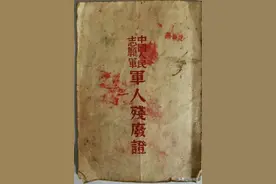 中國人民
志願軍
軍人殘廢證